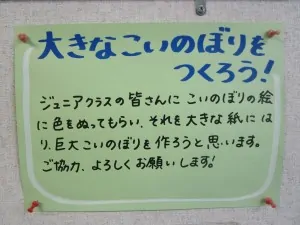 大きなこいのぼりを
つくろう!
ジュニアクラスの皆さんに こいのぼりの絵
に色をぬってもらい、それを大きな紙には
り、巨大こいのぼりを作ろうと思います。
ご協力、よろしくお願いします!